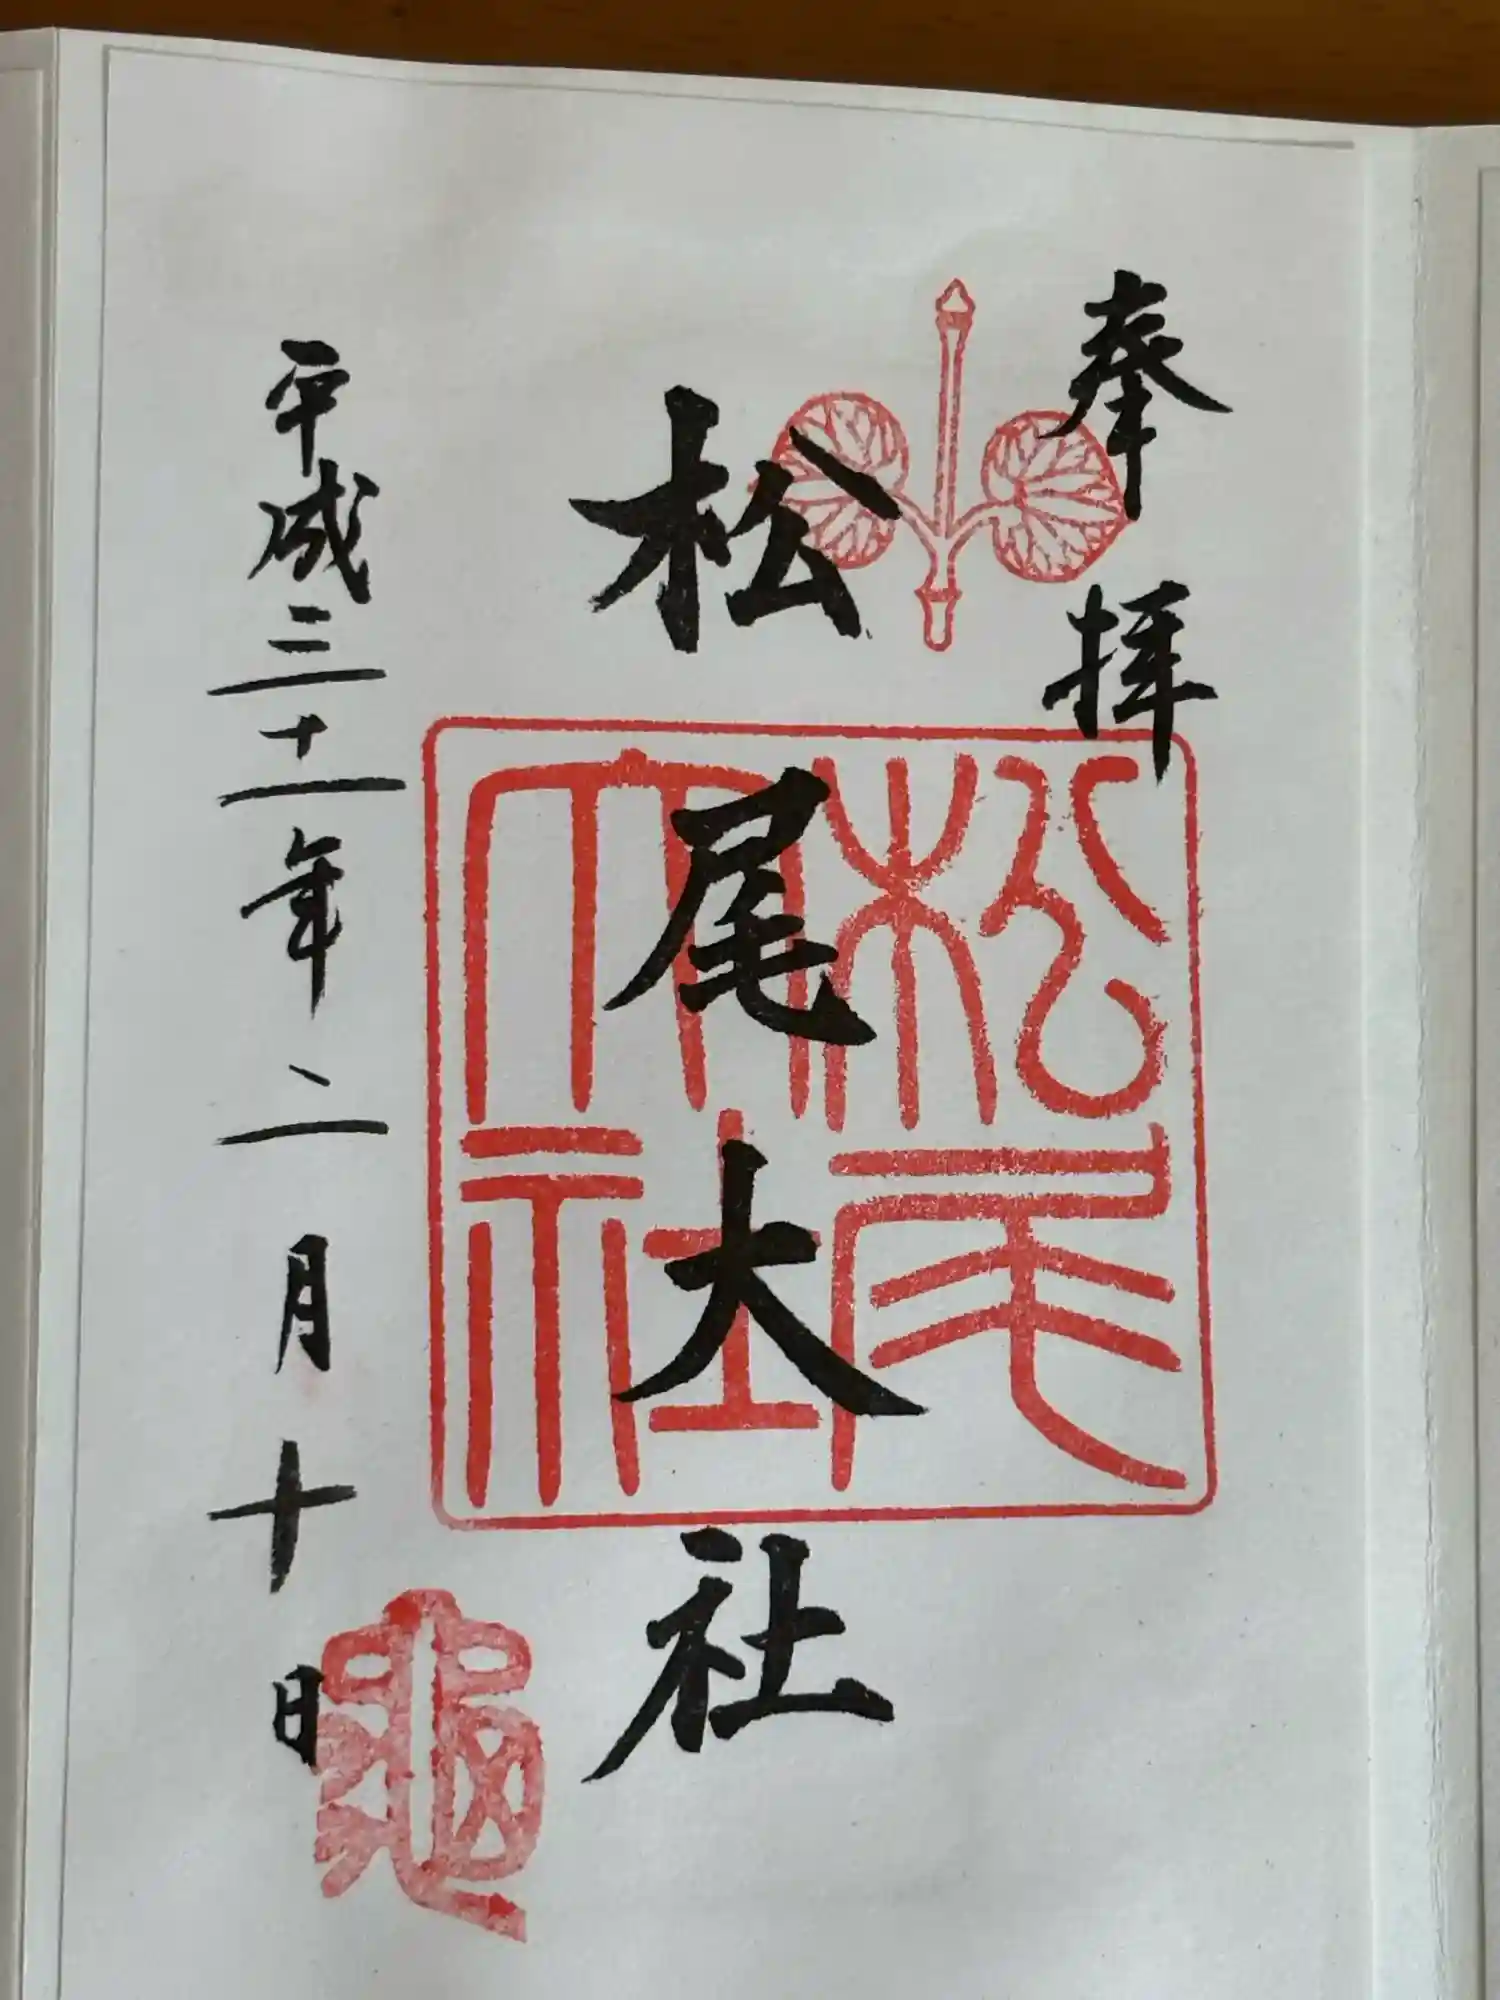 奉拝
松尾大社
松尾大社
平成三十一年二月十日
亀